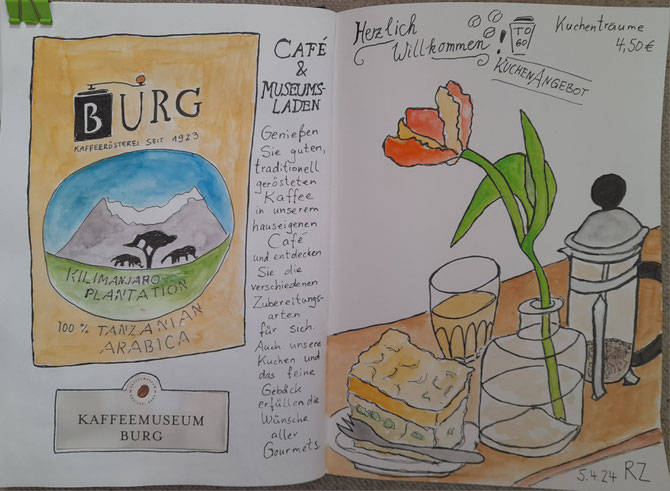 BURG
KAFFEERÖSTEREI SEIT 1923
KILIMANJARO
PLANTATION
100% TANZANIAN
ARABICA
KAFFEEMUSEUM
BURG
CAFÉ
&
MUSEUMS-
LADEN
Genießen
Sie guten,
traditionell
gerösteten
Kaffee
in unserem
hauseigenen
Café
und entdecken
Sie die
verschiedenen
Zubereitungs-
arten
für sich.
Auch unsere
Kuchen und
das feine
Gebäck
erfüllen die
Wünsche
aller
Gourmets.
Herzlich
Willkommen!
TO
GO
KUCHENANGEBOT
Kuchenträume
4,50€
5.4.24 RZ